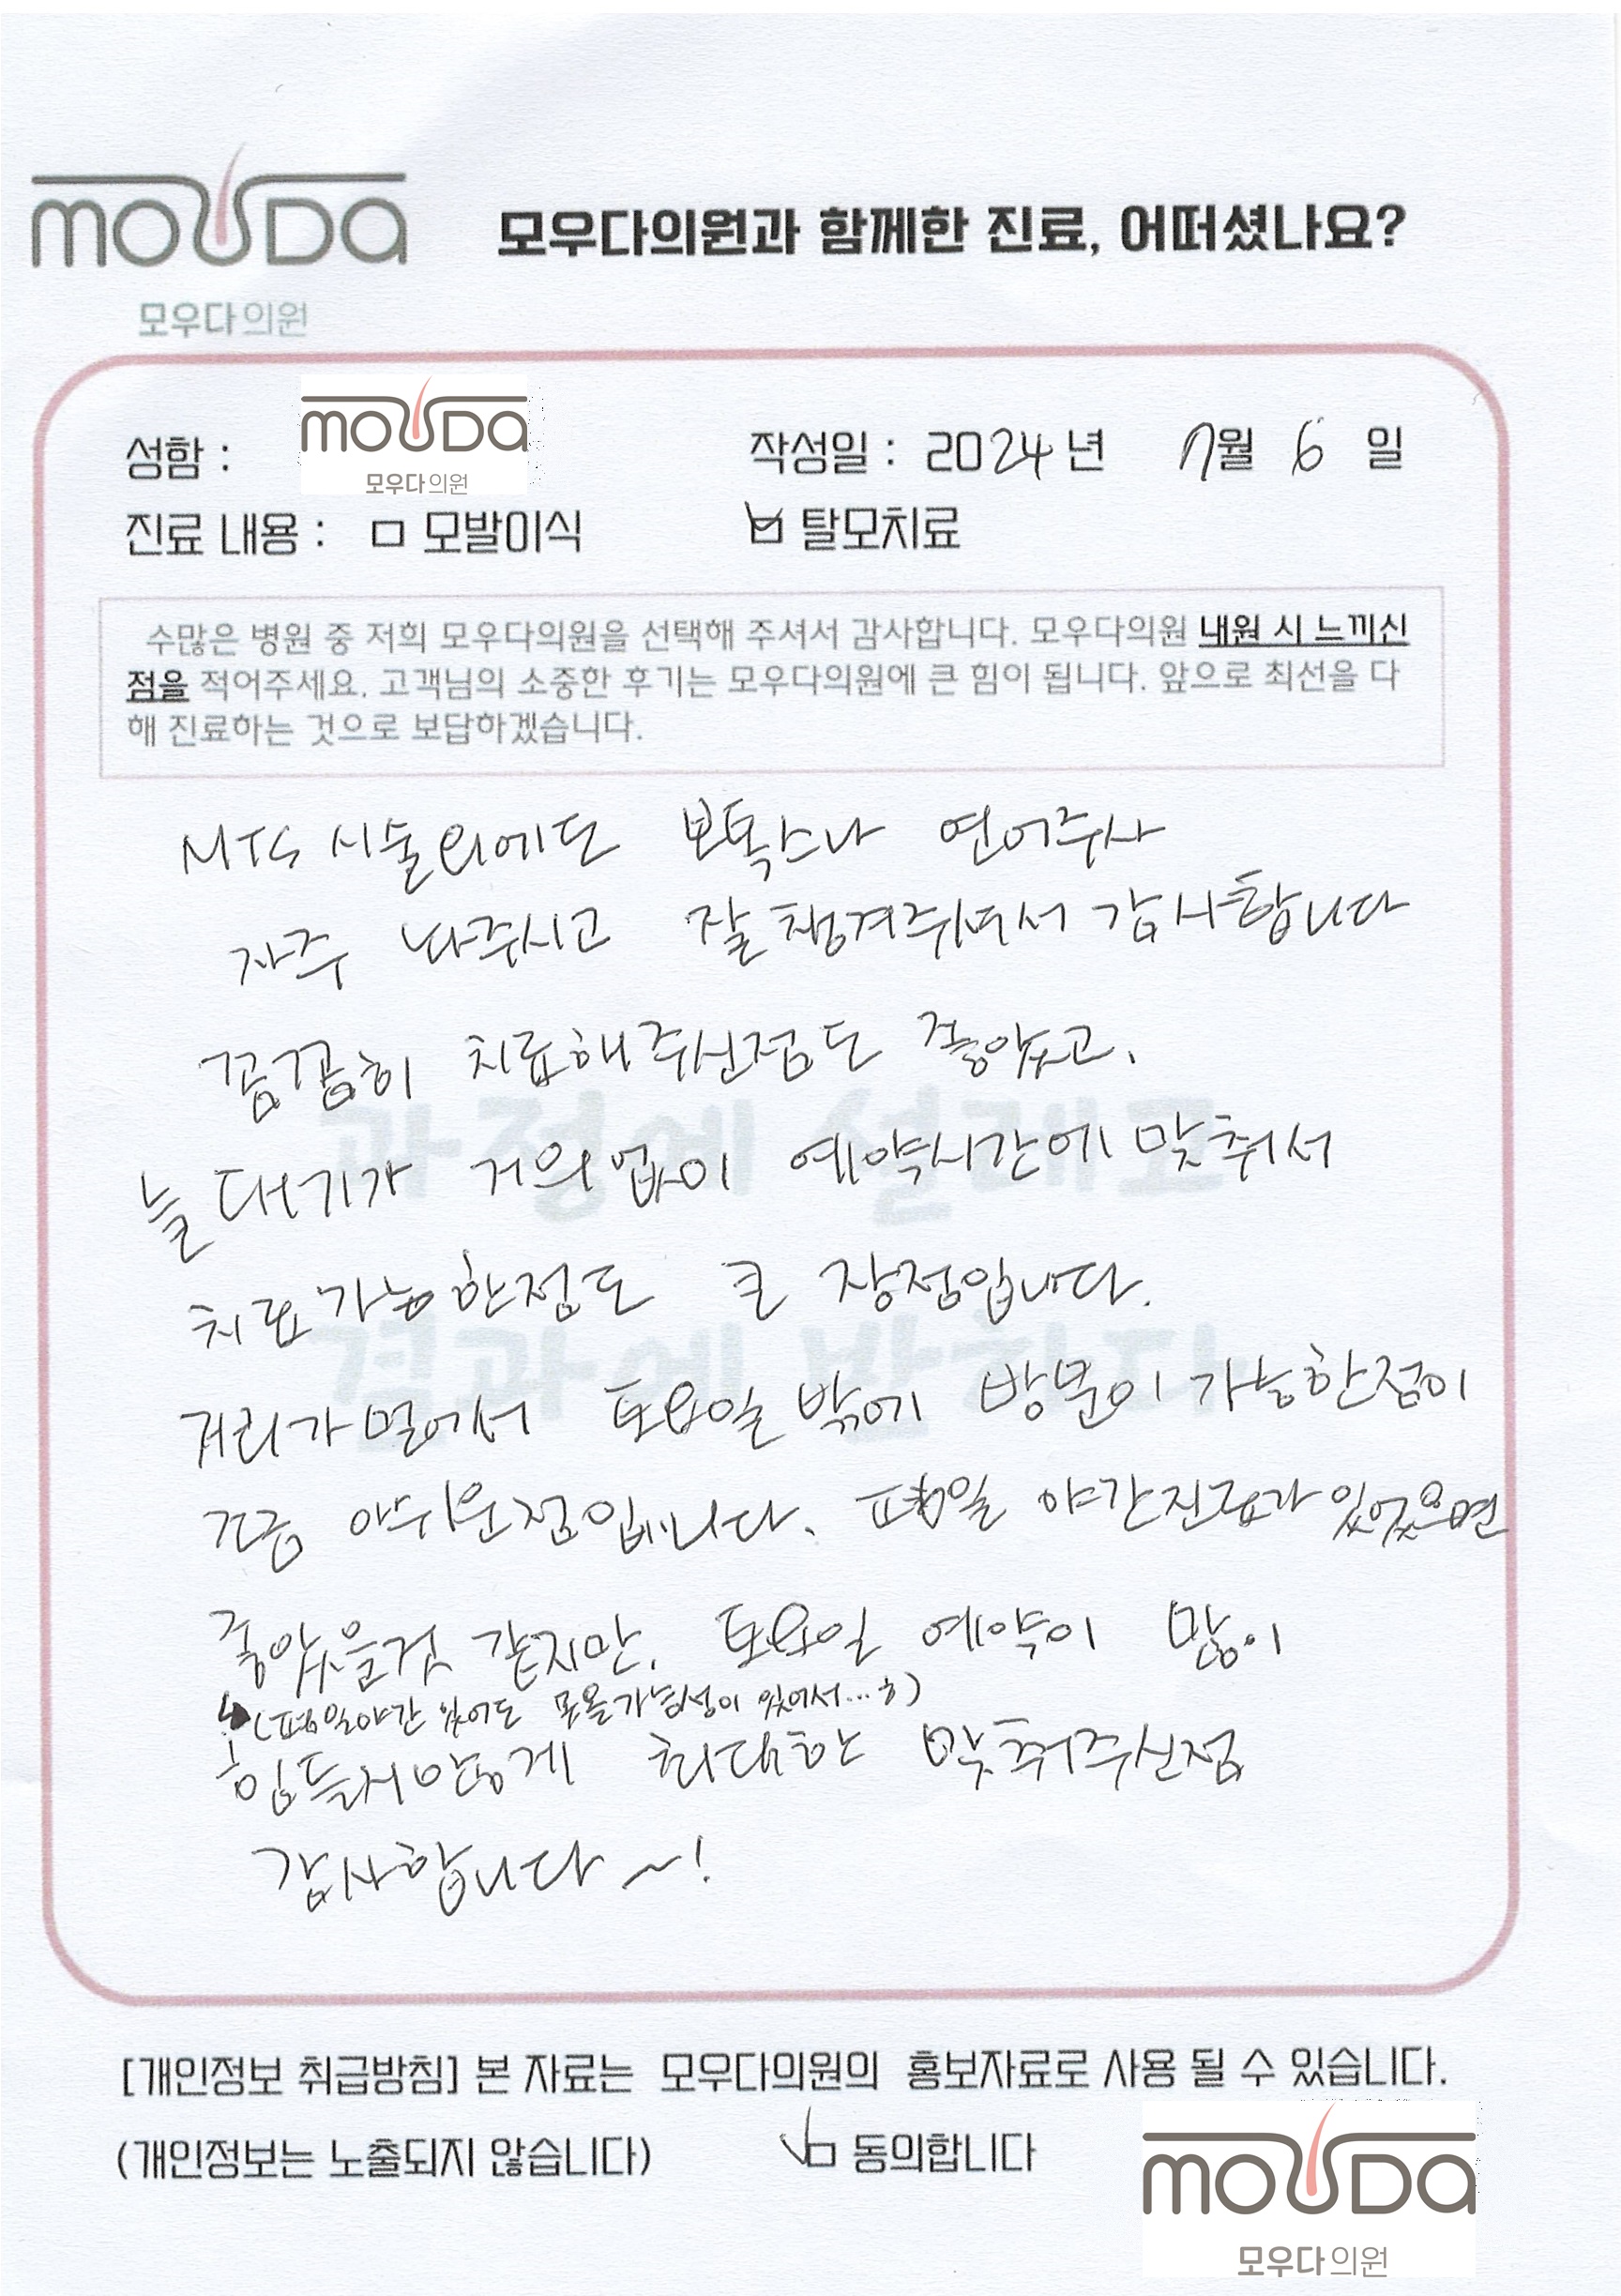 mouDa
모우다의원
모우다의원과 함께한 진료, 어떠셨나요?
성함 : mouDa 모우다의원
작성일 : 2024년 7월 6일
진료 내용 : □ 모발이식 ☑ 탈모치료
수많은 병원 중 저희 모우다의원을 선택해 주셔서 감사합니다. 모우다의원 내원 시 느끼신
점을 적어주세요. 고객님의 소중한 후기는 모우다의원에 큰 힘이 됩니다. 앞으로 최선을 다
해 진료하는 것으로 보답하겠습니다.
MTS 시술외에도 보톡스나 연어주사
자주 놔주시고 잘 챙겨주셔서 감사합니다
꼼꼼히 치료해주신점도 좋았고,
늘 대기가 거의없이 예약시간에 맞춰서
치료가능한점도 큰 장점입니다.
거리가멀어서 토요일밖에 방문이 가능한점이
조금 아쉬운점입니다. 평일 야간진료가 있었으면
좋았을것 같지만, 토요일 예약이 많이
(평일야간 있어도 못올가능성이 있어서...ㅎ)
힘들지않게 최대한 맞춰주신점
감사합니다~!
과정에 설레고
결과에 반하다
[개인정보 취급방침] 본 자료는 모우다의원의 홍보자료로 사용 될 수 있습니다.
(개인정보는 노출되지 않습니다) ☑ 동의합니다
mouDa
모우다의원